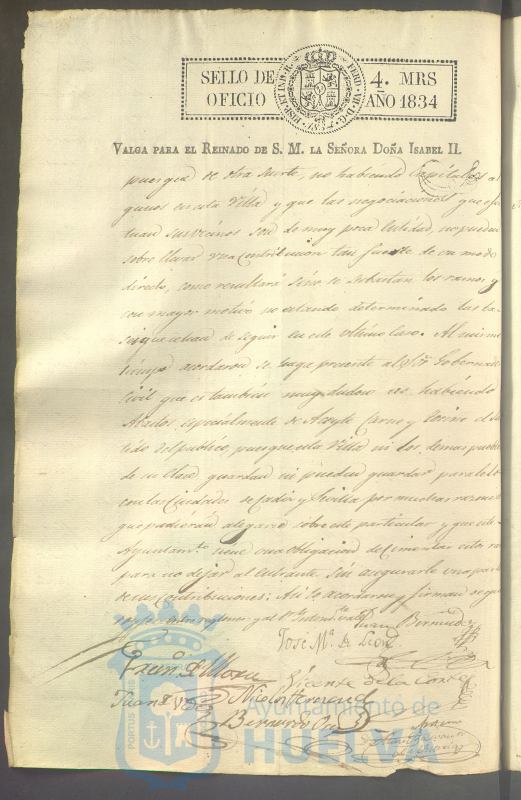 SELLO DE OFICIO
HISP. ET IND. R. FERD. VII. D. G.
4. MRS
AÑO 1834
VALGA PARA EL REINADO DE S. M. LA SEÑORA DOÑA ISABEL II.
puesque de otra suerte, no habiendo Capitales al
gunos en esta Villa y que las negociaciones que efec
tuan sus vecinos son de muy poca Utilidad, no pueden
sobre llevar una Contribucion tan fuerte de un modo
directo, como resultará sino se subastan los ramos y
con mayor motivo no estando determinado las ba
ses que de seguir en este ultimo Caso. Al mismo
tiempo acordaron se haga presente al Sor Gobernador
Civil que es tambien muy no habiendo
Abastos especialmente de Aceyte Carne y el
del publico, puesque esta Villa ni los demas pueblos
de su Clase guardan ni pueden guardar paralelo
con las Ciudades de Cadiz y Sevilla por muchas razones
que pudieran alegarse sobre este particular y que este
Ayuntamto tiene una obligacion de estos ra
para no dejar al Entrante sin asegurarle una parte
de sus Contribuciones: Asi lo acordaron y firman
Juan Bermudez
José Ma. de Leon
Franco de Mora
Vicente de la Corte
Juan
Nicolas
Bernardo
PORTUS
Ayuntamiento de
HUELVA